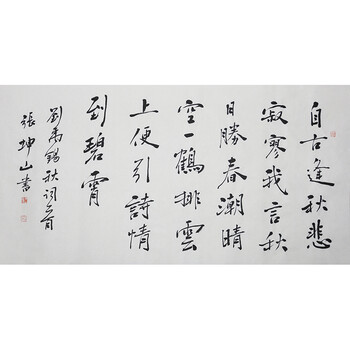 自古逢秋悲
寂寥我言秋
日勝春潮晴
空一鶴排雲
上便引詩情
到碧霄
劉禹錫秋詞一首
張坤山書